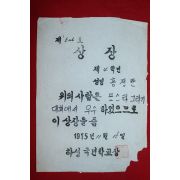 상장
제 학년
성명
위의 사람은 포스타 그리기
대회에서 우수 하였으므로
이 상장을 줌
1975년 11월 11일
하실 국민학교장